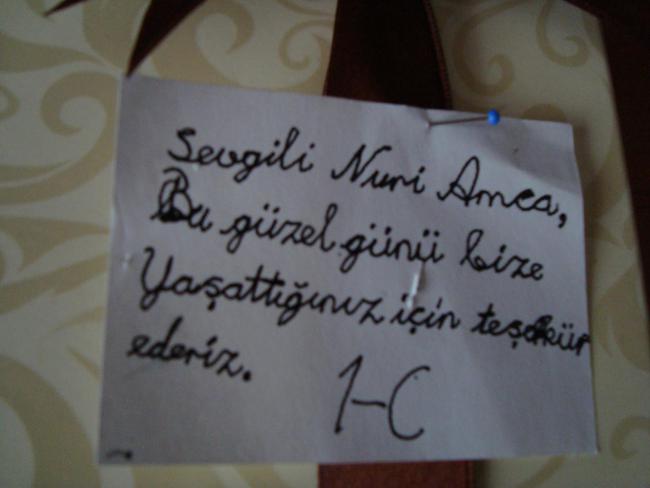 Sevgili Nuri Amca,
Bu güzel günü bize
Yaşattığınız için teşekür
ederiz.
1-C